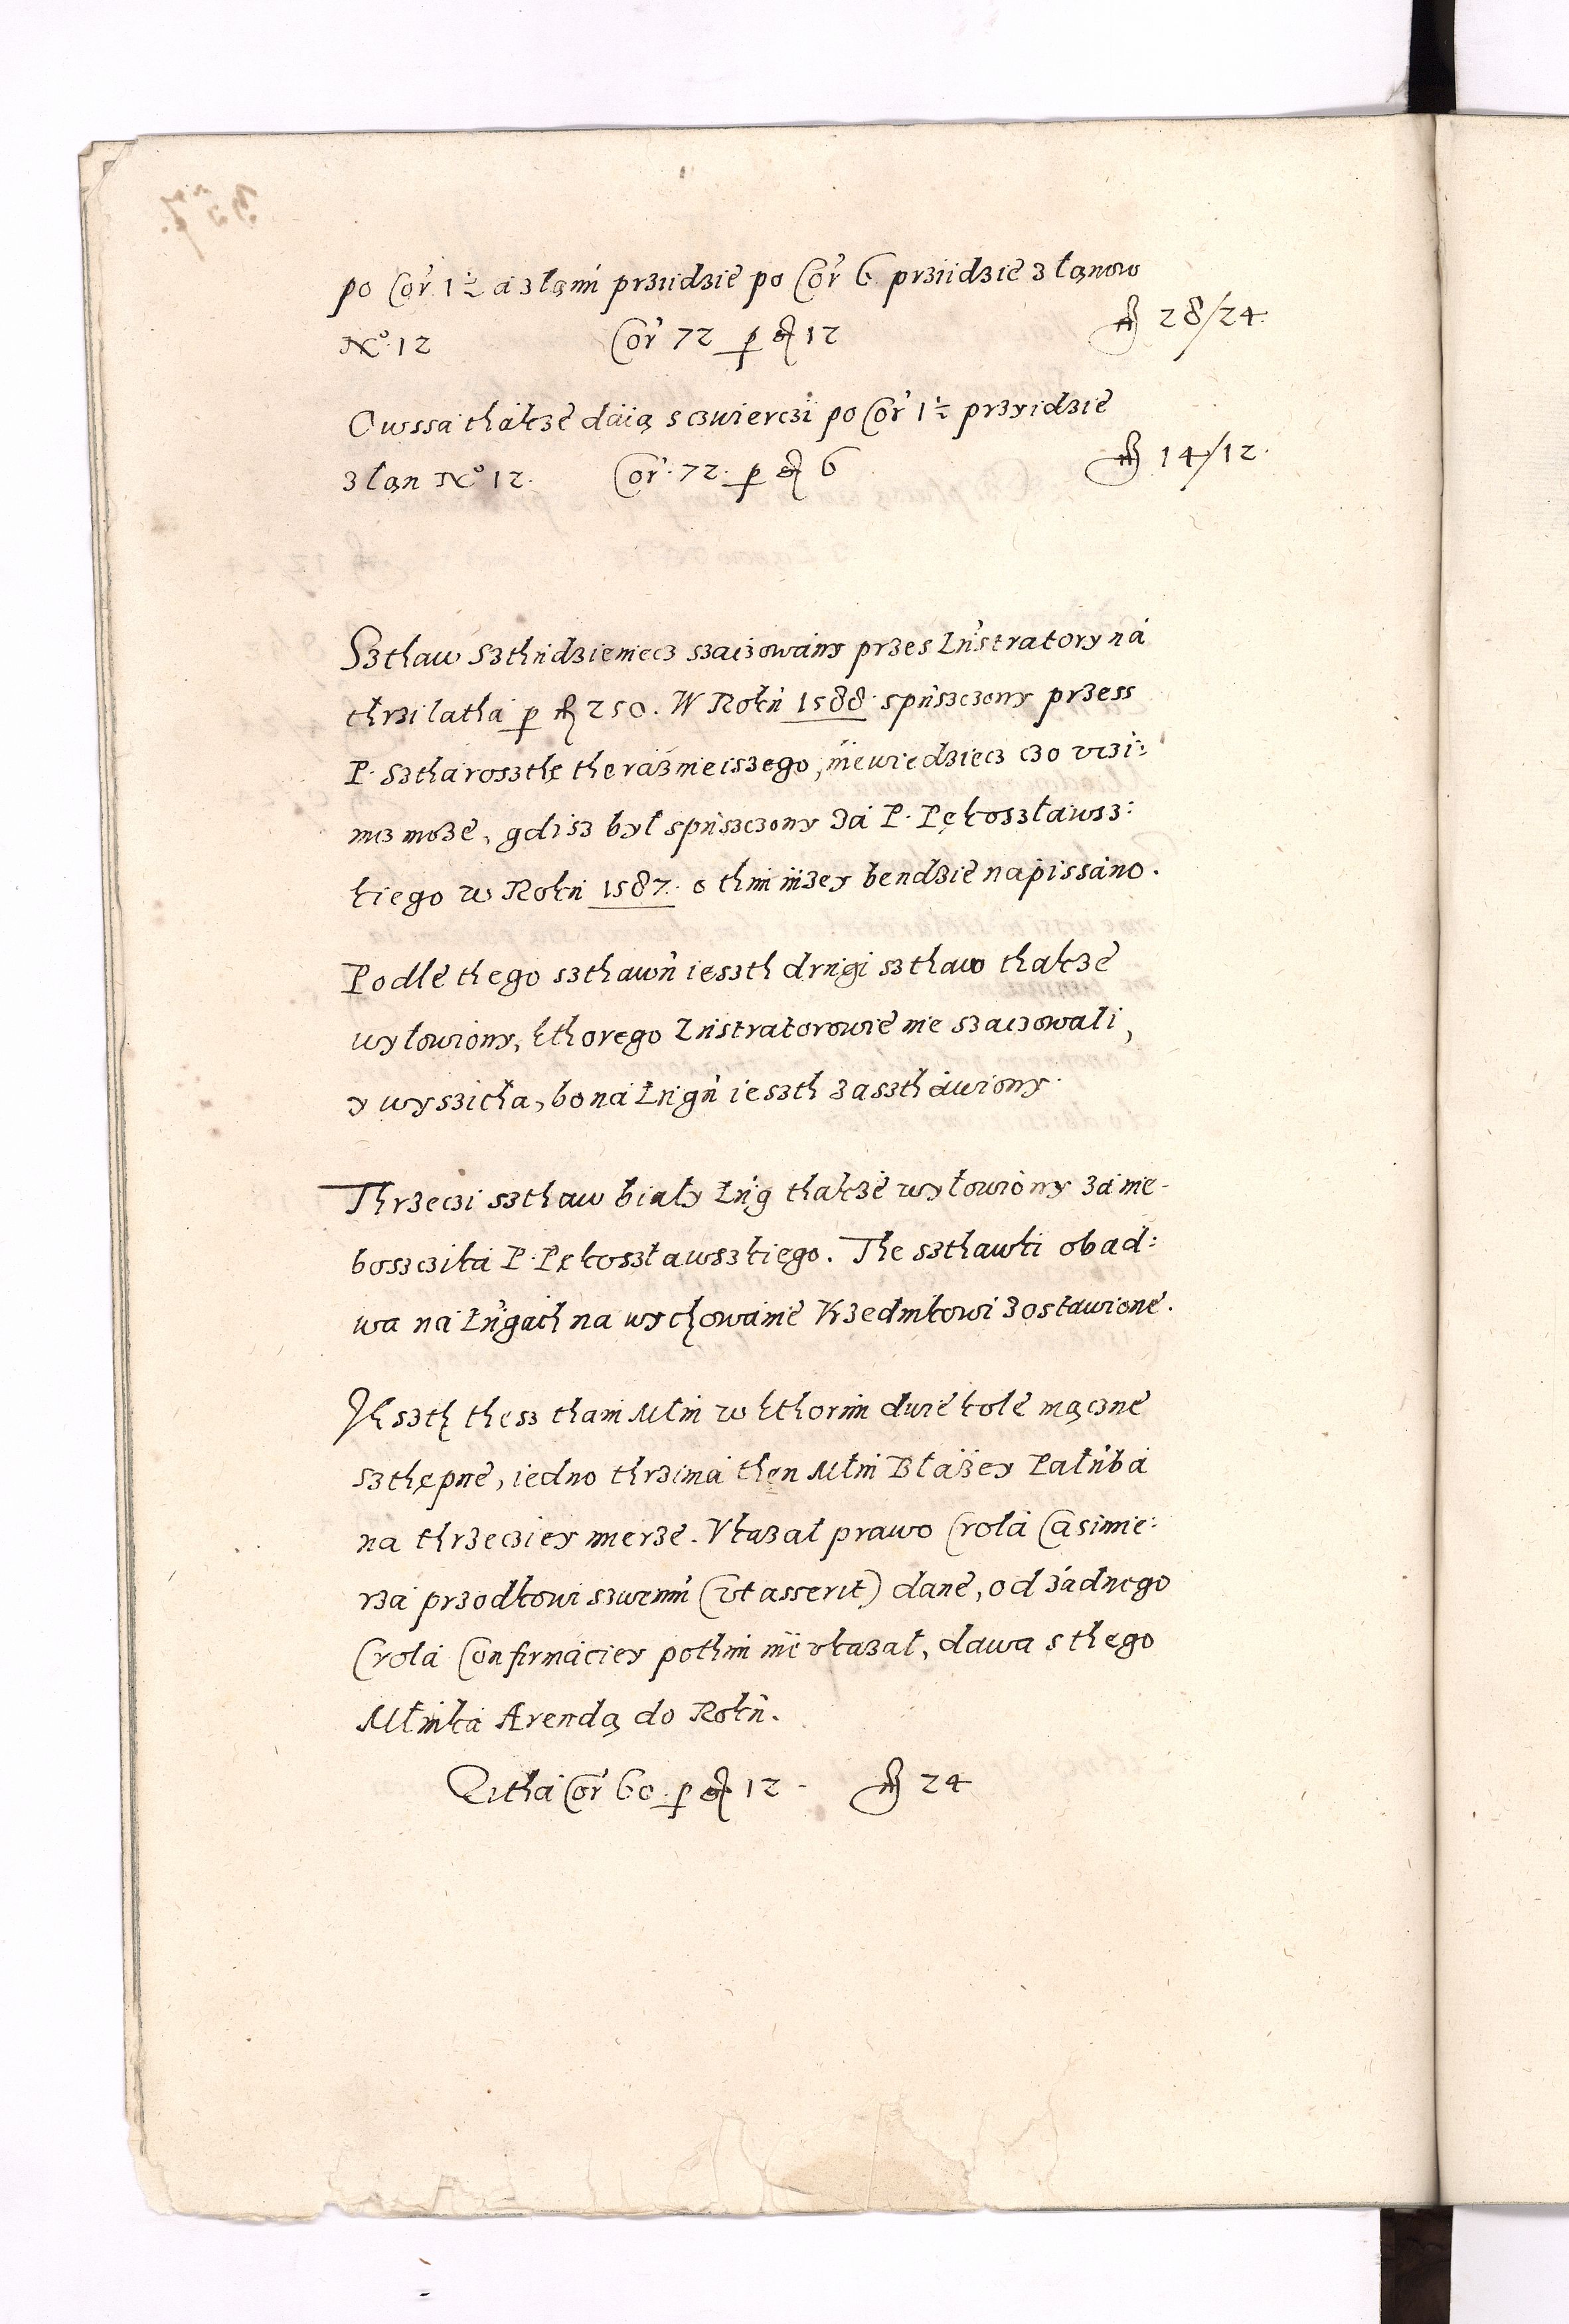 po Cor 1½ a z łanu przyidzie po Cor 6 przyidzie z łanow
No. 12 Cor 72 p gr 12 fl 28/24.
Owssa thakze daią s czwierczi po Cor 1½ przyidzie
z łan No 12. Cor. 72. p gr 6 fl 14/12.
Szthaw Szthudzieniecz szaczowany przes Lustratory na
thrzi latha p fl 250. W Roku 1588. spusczony przess
P. Sztharosthę theraznieiszego, niewiedziecz czo vczi:
nicz moze, gdisz był spusczony za P. Pękoszławsz:
kiego w Roku 1587. o thim nizey bendzie napissano.
Podle thego szthawu ieszth drugi szthaw thakze
wyłowiony, kthorego Lustratorowie nie szaczowali,
y wyszicha, bo na Ługu ieszth zaszthawiony.
Thrzeczi szthaw biały Ług thakze wyłowiony za nie-
bosczika P. Pękoszławszkiego. The szthawki obad:
wa na Ługach na wychowanie Vrzednikowi zostawione.
Iszth thesz tham Młin w kthorim dwie kole mączne
szthępne, iedno thrzima then Młin Błazey Pałuba
na thrzecziey mierze. Vkazał prawo Crola Casimie:
rza przodkowi szwemu (vt asserit) dane, od zadnego
Crola Confirmaciey pothim nie vkazał, dawa s thego
Młinka Arendą do Roku.
Zitha Cor 60. p gr 12 fl 24